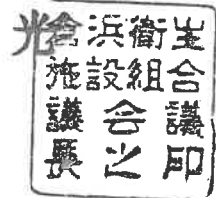 光
倉浜衛生
施設組合
議会議
長之印